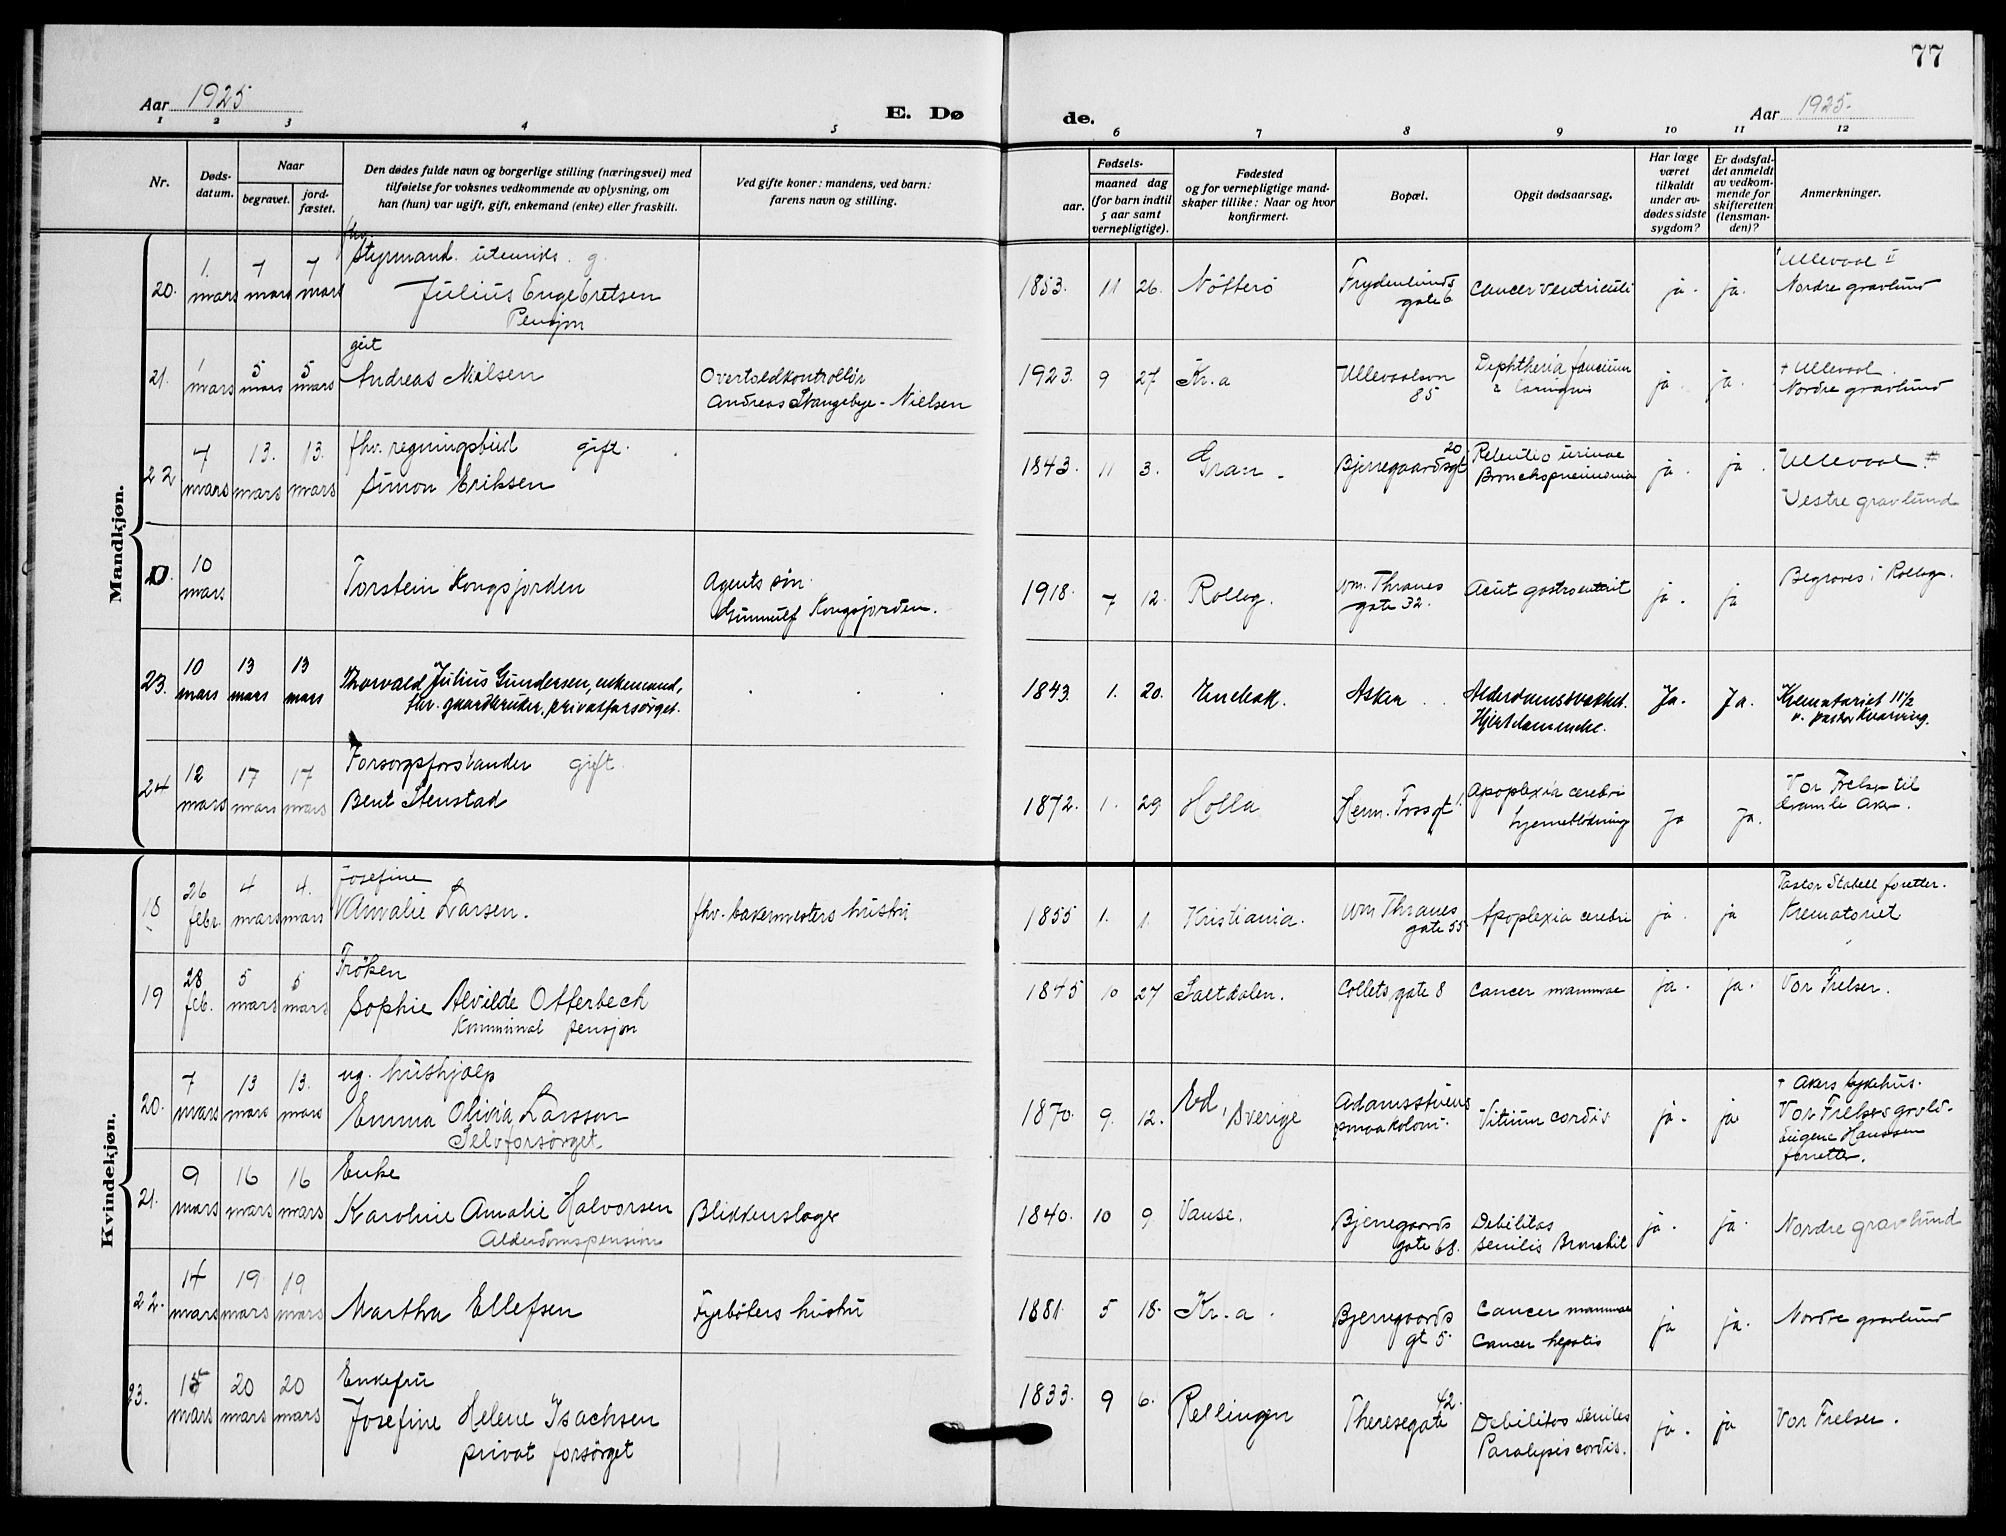 77
Aar 1925
E. Dø
de.
Aar 1925.
1 2 3 4 5 6 7 8 9 10 11 12
Nr.
Døds-
datum.
Naar
begravet.
jord-
fæstet.
Den dødes fulde navn og borgerlige stilling (næringsvei) med
tilføielse for voksnes vedkommende av oplysning, om
han (hun) var ugift, gift, enkemand (enke) eller fraskilt.
Ved gifte koner: mandens, ved barn:
farens navn og stilling.
Fødsels-
aar.
maaned dag
(for barn indtil
5 aar samt
vernepligtige).
Fødested
og for vernepligtige mand-
skaper tillike: Naar og hvor
konfirmert.
Bopæl.
Opgit dødsaarsag.
Har læge
været
tilkaldt
under av-
dødes sidste
sygdom?
Er dødsfal-
det anmeldt
av vedkom-
mende for
skifteretten
(lensman-
den)?
Anmerkninger.
Mandkjøn.
fhv.
Styrmand utenriks. g.
20. 1. mars 7 mars 7 mars
Julius Engebretsen
Pensjon
1853. 11 26. Nøtterö Frydenlunds
gate 6 Cancer ventriculi ja. ja. Ullevaal
Nordre gravlund
gut
21. 1 mars 5 mars 5 mars Andreas Nielsen
Overtoldkontrollør
Andreas Stangebye-Nielsen
1923. 9 27 Kr.a Ullevaalsvn
85 Diphtheria faucium
& laringis ja. ja. + Ullevaal.
Nordre gravlund
22 7 mars 13. mars 13. mars fhv. regningsbud gift.
Simon Eriksen
1843. 11 3. Gran Bjerregaardsgt
20 Retentio urinae
Bronchopneumonia ja. ja Ullevaal
Vestre gravlund
D. 10 mars Torstein Kongsjorden
Agents søn
Gunnulf Kongsjorden.
1918. 7 12. Rolleg. Wm. Thranes
gate 32. Acut gastroenterit ja. ja Begraves i Rolleg.
23. 10 mars 13 mars 13 mars Thorvald Julius Gundersen, enkemand,
fhv. gaardbruker, privatforsørget.
1843. 1. 20. Enebak. Asker Alderdomssvakhet.
Hjertelammelse. Ja. Ja. Krematoriet 11½
v. pastor Kvarving.
24 12 mars 17 mars 17 mars Forsorgsforstander gift
Bent Stenstad
1872. 1. 29 Holla Herm. Fossgt Apoplexia cerebri
hjerneblødning ja ja. Vor Frelser til
Gamle Aker.
Kvindekjøn.
18 26 febr. 4 mars 4. mars Josefine
Amalie Larsen.
fhv. bakermesters hustru
1855 1. 1. Kristiania. Wm Thranes
gate 55. Apoplexia cerebri ja. ja Pastor Stabell foretter.
Krematoriet
19 28 feb. 5 mars 5 mars Frøken
Sophie Alvilde Otterbech
Kommunal pensjon
1845 10 27 Saltdalen. Collets gate 8 Cancer mammae ja. ja. Vor Frelser.
20. 7 mars 13 mars 13. mars ug. hushjælp
Emma Olivia Larsson
Selvforsørget
1870. 9. 12. Ed, Sverige Adamsstuens
smaakoloni. Vitium cordis ja. ja + Akers sykehus.
Vor Frelsers gravl.
Eugene Hanssen
forretter.
21. 9 mars 16 mars 16 mars Enke
Karoline Amalie Halvorsen
Alderdomspension
Blikkenslager
1840. 10 9 Vanse. Bjerregaards
gate 68. Debilitas
senilis Bronchit ja. ja. Nordre gravlund
22. 14 mars 19 mars 19 mars Martha Ellefsen
Fyrbøters hustru
1881. 5 18. Kr.a. Bjerregaards
gt 5. Cancer mammae
Cancer hepatis ja ja. Nordre gravlund
23. 15 mars 20 mars 20 mars Enkefru
Josefine Helene Isachsen
privat forsørget
1833. 9 6. Rellingen Theresegate
42. Debilitas seniles
Paralysis cordis. ja. ja Vor Frelser.